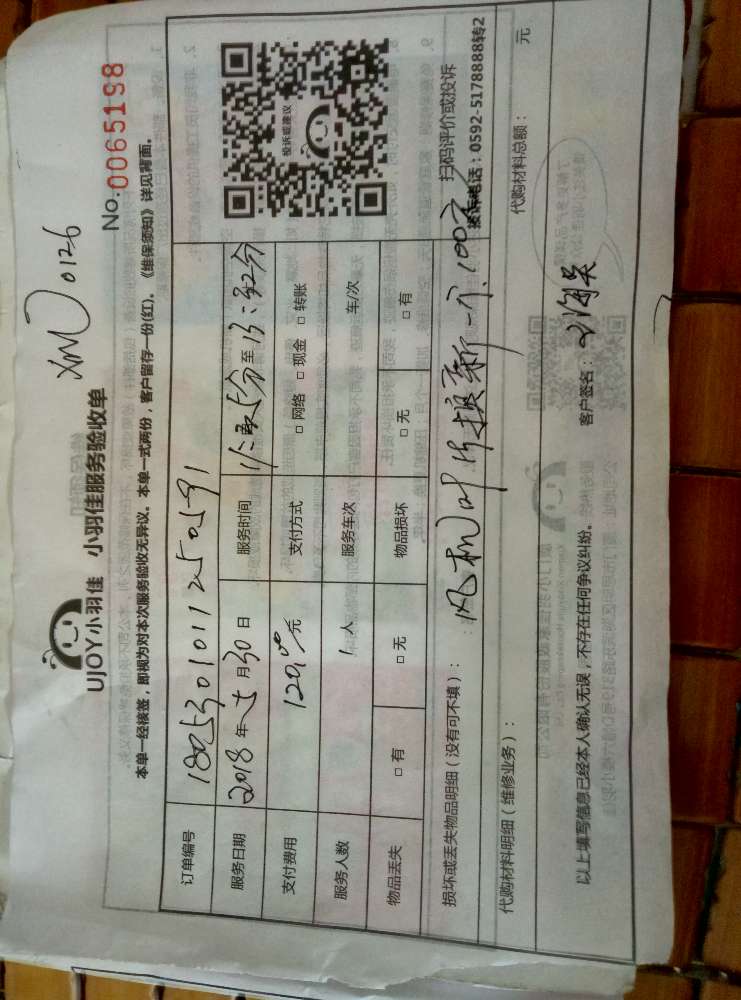 XM 0126
UJOY小羽佳 小羽佳服务验收单
No.0065198
本单一经核签，即视为对本次服务验收无异议。本单一式两份，客户留存一份(红)、《维保须知》详见背面。
订单编号
服务日期 2018年5月30日 服务时间
支付费用 120.00元 支付方式 □网络 □现金 □转账
服务人数 1人 服务车次 车/次
物品丢失 □有 □无 物品损坏 □无 □有
投诉或建议
扫码评价或投诉
投诉电话：0592-5178888转2
损坏或丢失物品明细（没有可不填）： 风机叶片换新一个，100元
代购材料明细（维修业务）： 代购材料总额： 元
以上填写信息已经本人确认无误，不存在任何争议纠纷。 客户签名：